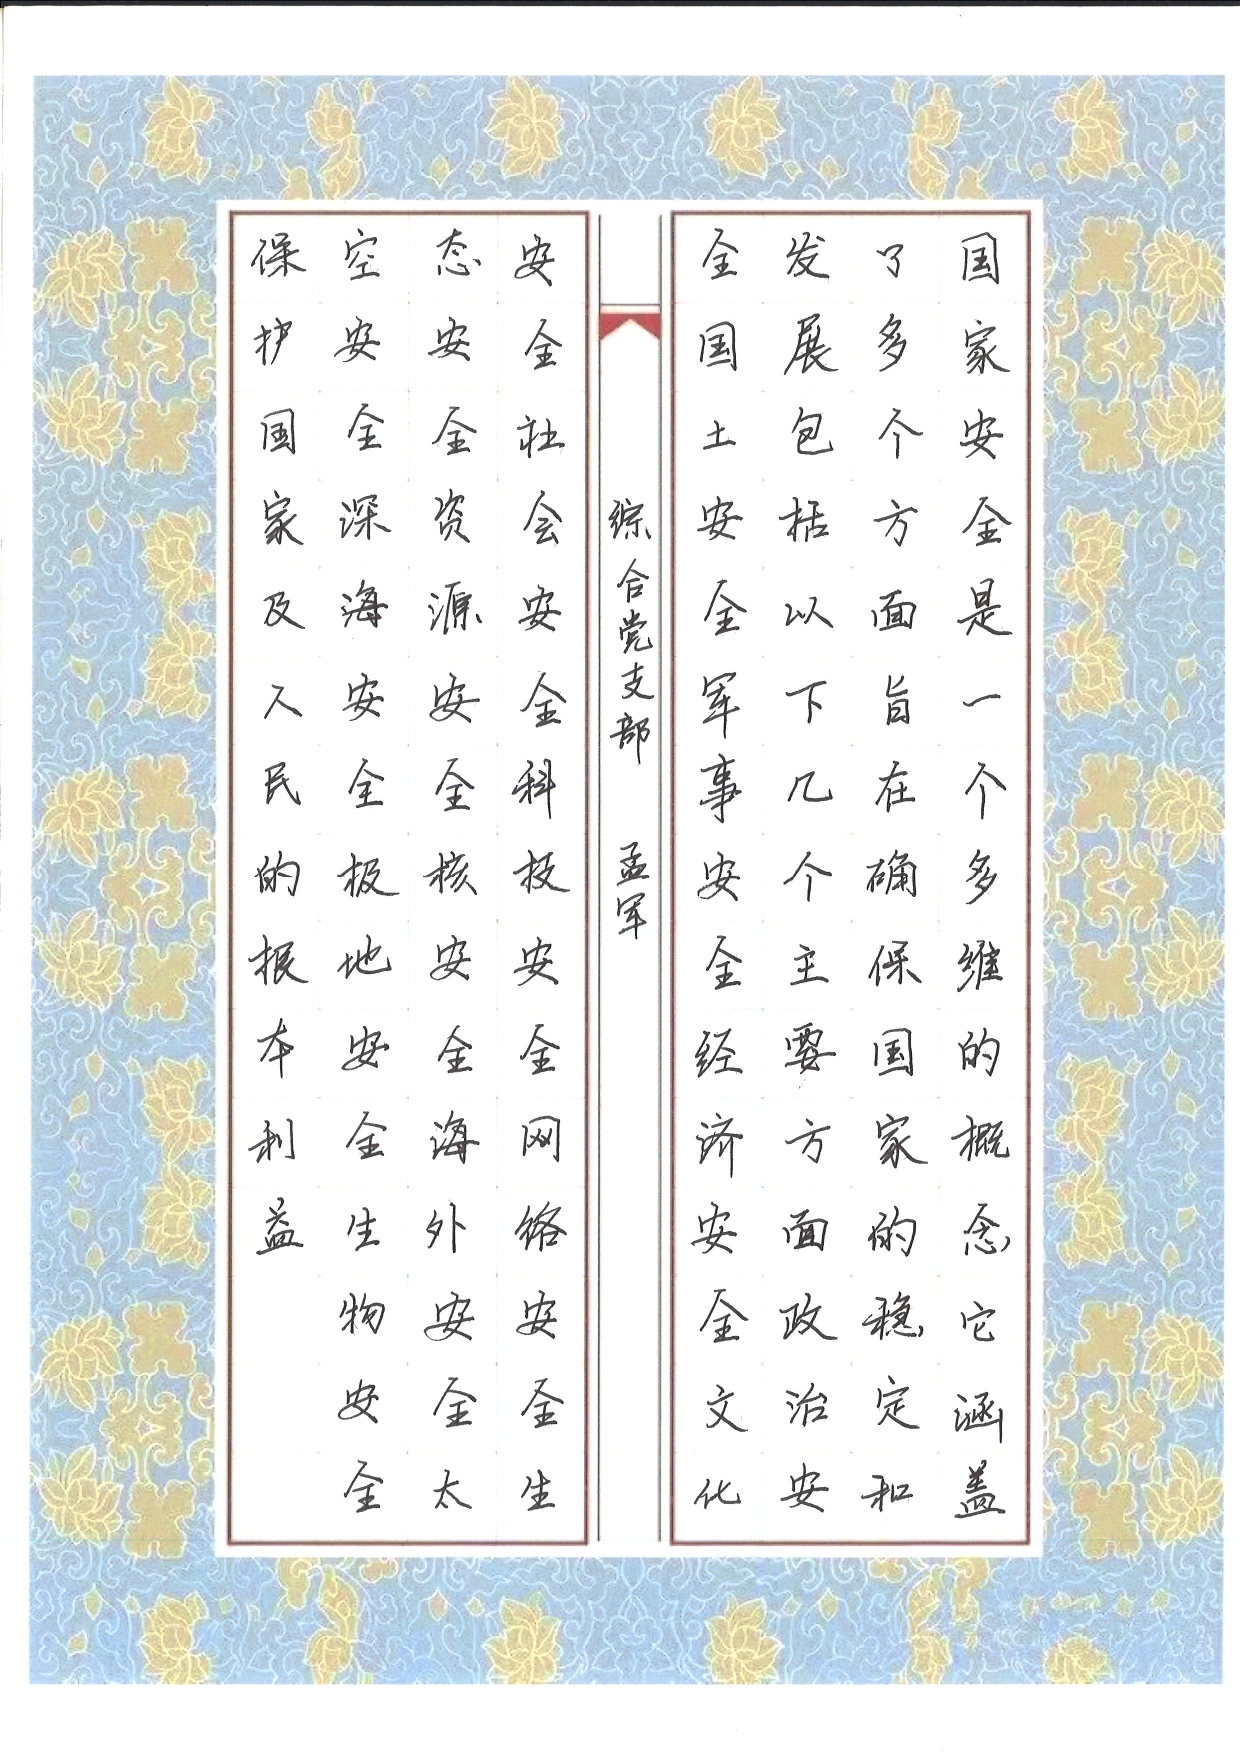 国家安全是一个多维的概念,它涵盖
了多个方面旨在确保国家的稳定和
发展包括以下几个主要方面政治安
全国土安全军事安全经济安全文化
综合党支部 孟军
安全社会安全科技安全网络安全生
态安全资源安全核安全海外安全太
空安全深海安全极地安全生物安全
保护国家及人民的根本利益